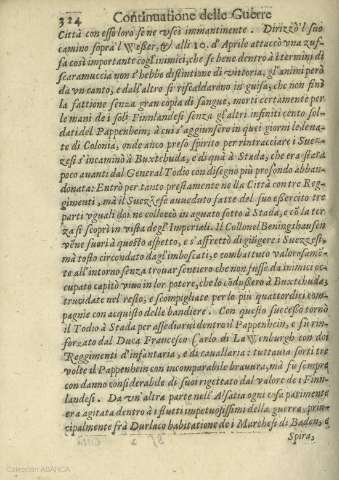 324 Continuatione delle Guerre
Città con esso loro se ne vscì immantinente. Dirizzò'l suo
camino sopra'l Weßer, & alli 10. d'Aprile attaccò vna zuf-
fa così importante cogl'inimici, che se bene dentro à i termini di
scaramuccia non s'hebbe distintione di vittoria, gl'animi però
da vn canto, e dall'altro si riscaldarano in guisa, che non finì
la fattione senza gran copia di sangue, morti certamente per
le mani de i soli Finnlandesi senza gl'altri infiniti cento sol-
dati del Pappenheim, à cui s'aggiunsero in quei giorni le lena-
te di Colonia, onde anco preso spirito per rintracciare i Suez-
zesi s'incaminò à Buxtehuda, e di quà à Stada, che era stata
poco auanti dal General Todio con disegno più profondo abban-
donata: Entrò per tanto prestamente nella Città contre Reg-
gimenti, mà il Suezzese aueduto fatte del suo essercito tre
parti vguali doi ne collocò in aguato sotto à Stada, e cò la ter-
za si scoprì in vista degl'Imperiali. Il Collonel Beninghausen
vène fuori à questo aspetto, e s'affrettò di giùgere i Suezzesi,
mà tosto circondato dagl'imboscati, e combattuto valorosamē-
te all'intorno senza trouar sentiero che non fusse da inimici oc-
cupato capitò viuo in lor potere, che lo còdußero à Buxtehuda,
trucidate nel resto, e scompigliate per lo più quattordici com-
pagnie con acquisto delle bandiere. Con questo successo tornò
il Todio à Stada per assediarui dentro il Pappenheim, e fu rin-
forzato dal Duca Francesco Carlo di LaWenburgh con doi
Reggimenti d'infantaria, e di cauallaria: tuttauia sortì tre
volte il Pappenheim con incomparabile brauura, mà fu sempre
con danno considerabile di fuori rigettato dal valore de i Finn-
landesi. Da vn'altra parte nell'Alsatia ogni cosa parimente
era agitata dentro à i flutti impetuosissimi della guerra, prin-
cipalmente frà Durlaco habitatione de i Marchesi di Baden, e
Spira,
Colección ABANCA